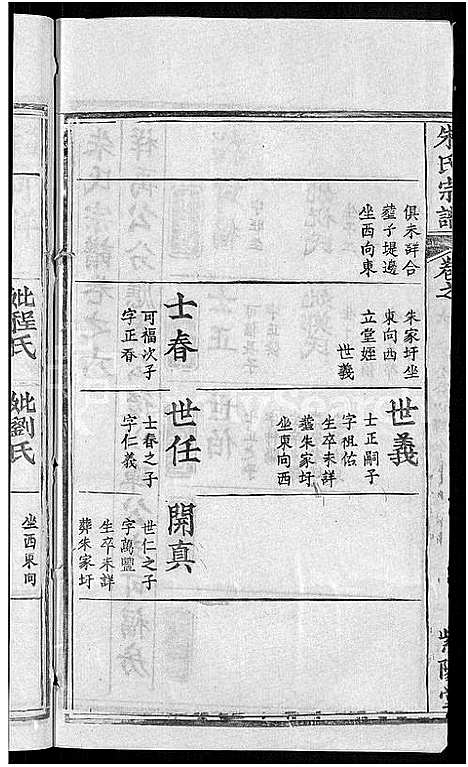 朱氏宗譜
卷之
紫陽堂
俱未詳合
塟子堤邊
坐西向東
朱家圩坐
東向西
立堂姪
世義
士春
可福次子
字正春
世義
士正嗣子
字祖佑
生卒未詳
塟朱家圩
坐東向西
世任
士春之子
字仁義
開真
世仁之子
字萬豐
生卒未詳
葬朱家圩
妣程氏
妣劉氏
坐西東向